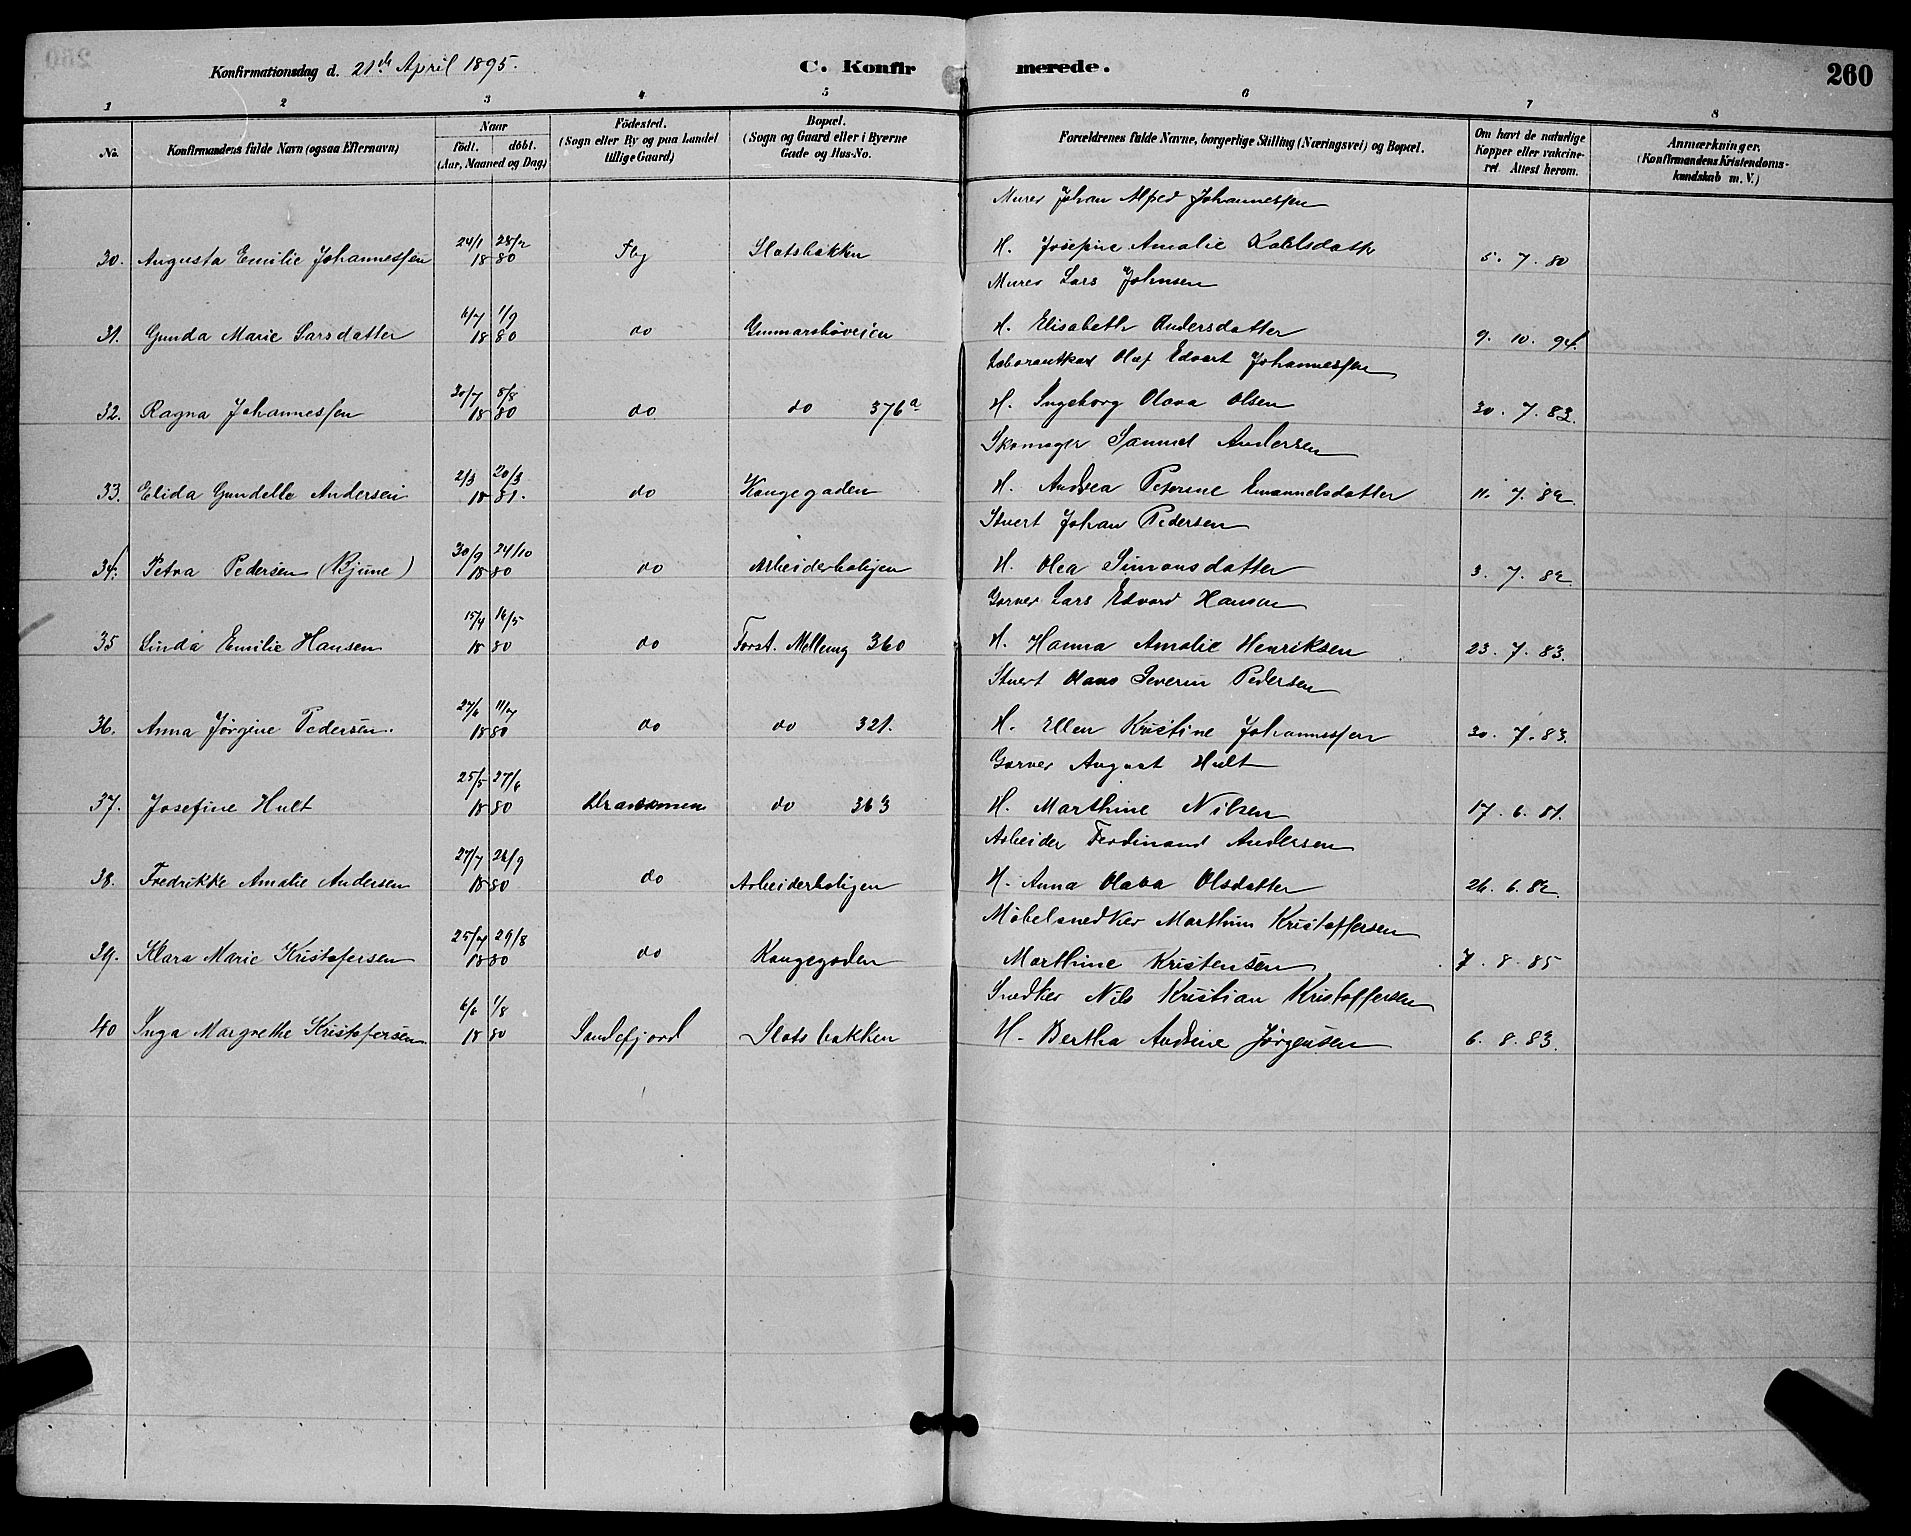 Konfirmationsdag d. 21de April 1895. C. Konfirmerede. 260
1 2 3 4 5 6 7 8
No. Konfirmandens fulde Navn (ogsaa Efternavn) Naar födt. döbt. (Aar, Maaned og Dag) Födested. (Sogn eller By og paa Landet tillige Gaard) Bopæl. (Sogn og Gaard eller i Byerne Gade og Hus-No. Forældrenes fulde Navne, borgerlige Stilling (Næringsvei) og Bopæl. Om havt de naturlige Kopper eller vakcineret. Attest herom. Anmærkninger. (Konfirmandens Kristendomskundskab m. V.)
Murer Johan Alfred Johannessen
30. Augusta Emilie Johannessen 24/1 28/2 18 80 Tbg Slotsbakken H. Josefine Amalie 5. 7. 80
Murer Lars Johnsen
31. Gunda Marie Larsdatter 6/7 1/9 18 80 do Gunnarsbøveien H. Elisabeth Andersdatter 9. 10. 94.
Olaf Edvart Johannessen
32. Ragna Johannessen 30/7 8/8 18 80 do do 376a H. Ingeborg Olava Olsen 30. 7. 83.
Skomager Samuel Andersen
33. Elida Gundelle Andersen 2/3 20/3 18 81. do Kongegaden H. Andrea Peterine Emanuelsdatter 11. 7. 82
Stuert Johan Pedersen
34. Petra Pedersen (Bjune) 30/9 24/10 18 80 do Arbeiderboligen H. Olea Simonsdatter 3. 7. 82
Garver Lars Edvard Hansen
35 Linda Emilie Hansen 15/4 16/5 18 80 do Forst. Mølleng 360 H. Hanna Amalie Henriksen 23. 7. 83.
Stuert Hans Severin Pedersen
36. Anna Jørgine Pedersen. 27/6 11/7 18 80 do do 321. H. Ellen Kristine Johannessen 30. 7. 83.
Garver August Hult
37. Josefine Hult 25/5 27/6 18 80 Drammen do 363 H. Marthine Nilsen 17. 6. 81.
Arbeider Ferdinand Andersen
38. Fredrikke Amalie Andersen 27/7 26/9 18 80 do Arbeiderboligen H. Anna Olava Olsdatter 26. 6. 82
Møbelsnedker Marthin Kristoffersen
39. Klara Marie Kristofersen 25/7 29/8 18 80 do Kongegaden Marthine Kristensen 7. 8. 85
Snedker Nils Kristian Kristoffersen
40 Inga Margrethe Kristofersen. 6/6 1/8 18 80 Sandefjord Slotsbakken H. Bertha Andrine Jørgensen 6. 8. 83.